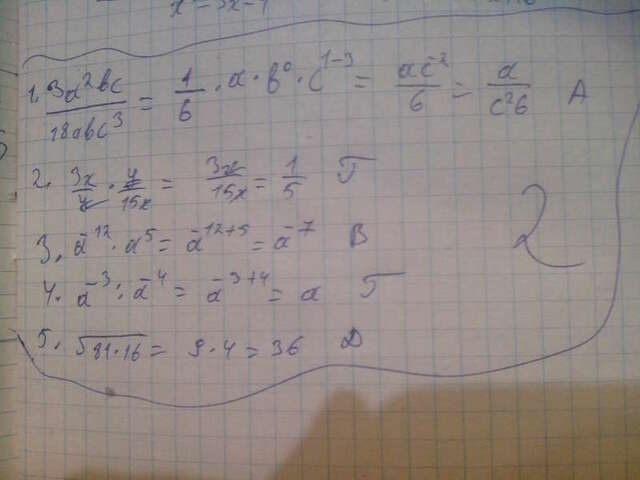 1. 3a²bc/18abc³ = 1/6 · a · b⁰ · c¹⁻³ = ac⁻²/6 = a/c²6 А
2. 3x/y · y/15x = 3x/15x = 1/5 Г
3. a⁻¹² · a⁵ = a⁻¹²⁺⁵ = a⁻⁷ В
4. a⁻³ : a⁻⁴ = a⁻³⁺⁴ = a Г
5. √81·16 = 9·4 = 36 Д
2